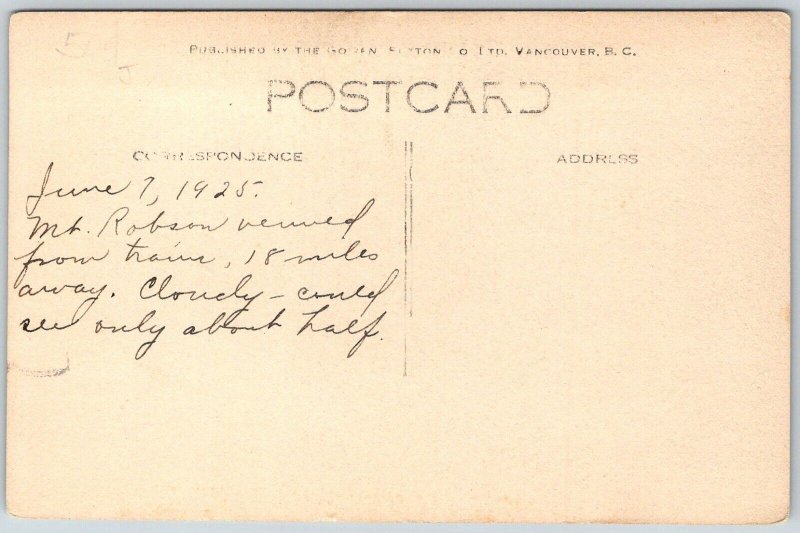 PUBLISHED BY THE GOWEN SUTTON CO. LTD. VANCOUVER, B. C.
POSTCARD
CORRESPONDENCE
ADDRESS
June 7, 1925.
Mt. Robson viewed
from train, 18 miles
away. Cloudy - could
see only about half.